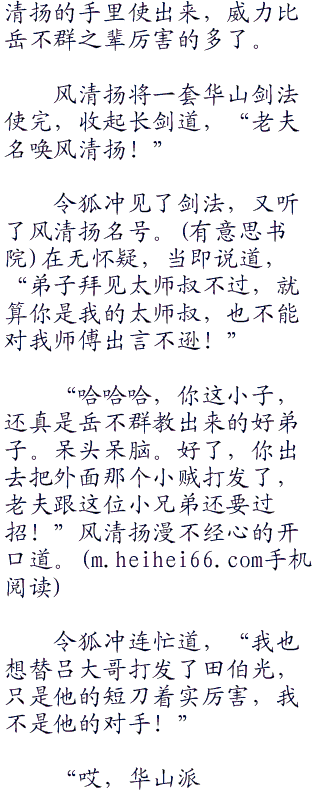 清扬的手里使出来，威力比
岳不群之辈厉害的多了。
风清扬将一套华山剑法
使完，收起长剑道，“老夫
名唤风清扬！”
令狐冲见了剑法，又听
了风清扬名号。(有意思书
院)在无怀疑，当即说道，
“弟子拜见太师叔不过，就
算你是我的太师叔，也不能
对我师傅出言不逊！”
“哈哈哈，你这小子，
还真是岳不群教出来的好弟
子。呆头呆脑。好了，你出
去把外面那个小贼打发了，
老夫跟这位小兄弟还要过
招！”风清扬漫不经心的开
口道。(m.heihei66.com手机
阅读)
令狐冲连忙道，“我也
想替吕大哥打发了田伯光，
只是他的短刀着实厉害，我
不是他的对手！”
“哎，华山派